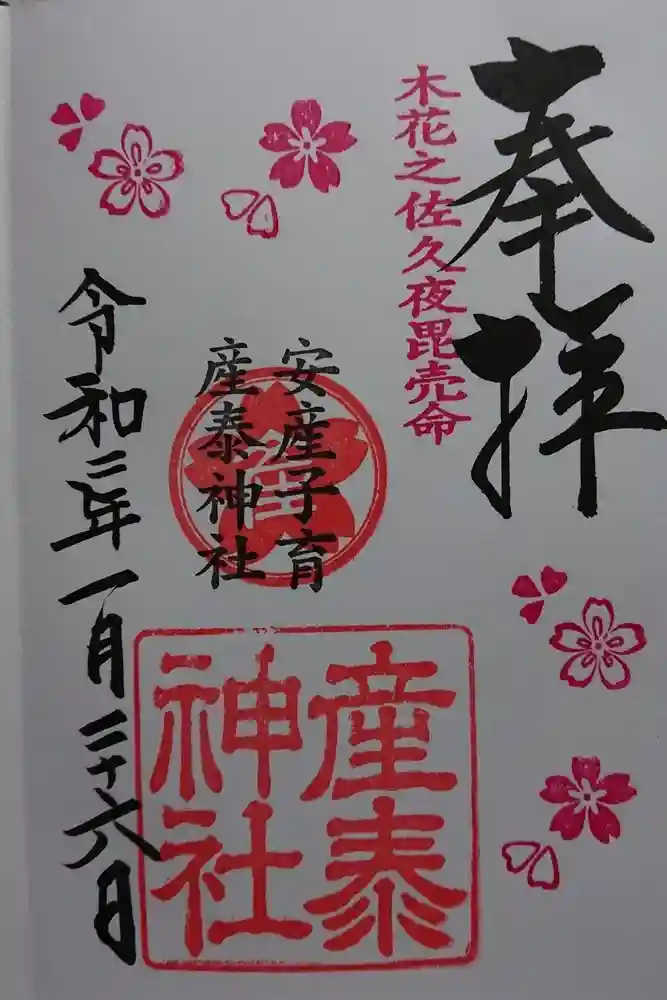 奉拝
木花之佐久夜毘売命
安産子育
産泰神社
産泰
神社
令和二年一月二十六日